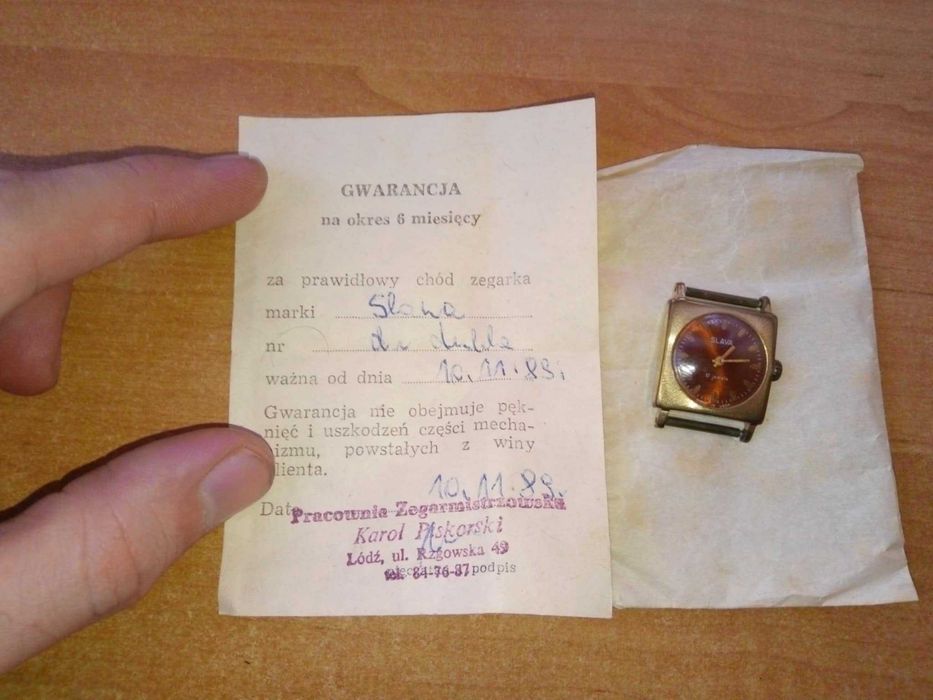 GWARANCJA
na okres 6 miesięcy
za prawidłowy chód zegarka
marki Slawa
nr
ważna od dnia 10.11.89.
Gwarancja nie obejmuje pęk-
nięć i uszkodzeń części mecha-
izmu, powstałych z winy
lienta.
10.11.89.
Dat
Pracownia Zegarmistrzowska
Karol Piskorski
Łódź, ul. Rzgowska 49
tel. 84-76-87
podpis
SLAVA